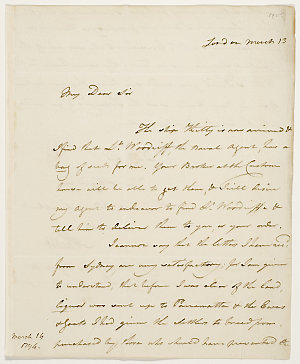 London March 13
My Dear Sir
The ship Kitty is now arrived &
I find that Lt. Woodriff the naval Agent, has a
bag of seeds for me. Your Broker at the Custom
house will be able to get them, & I will
my Agent to endeavor to find Lt. Woodriff &
tell him to deliver them to you or your order.
I cannot say that the letters I have
from Sydney are very satisfactory, for I am given
to understand, that before I was clear of the land,
was sent up to Parramatta & the Ewes
& Goats I had given the settlers to breed from,
purchased by those who should have prevented the
March 14
1794.